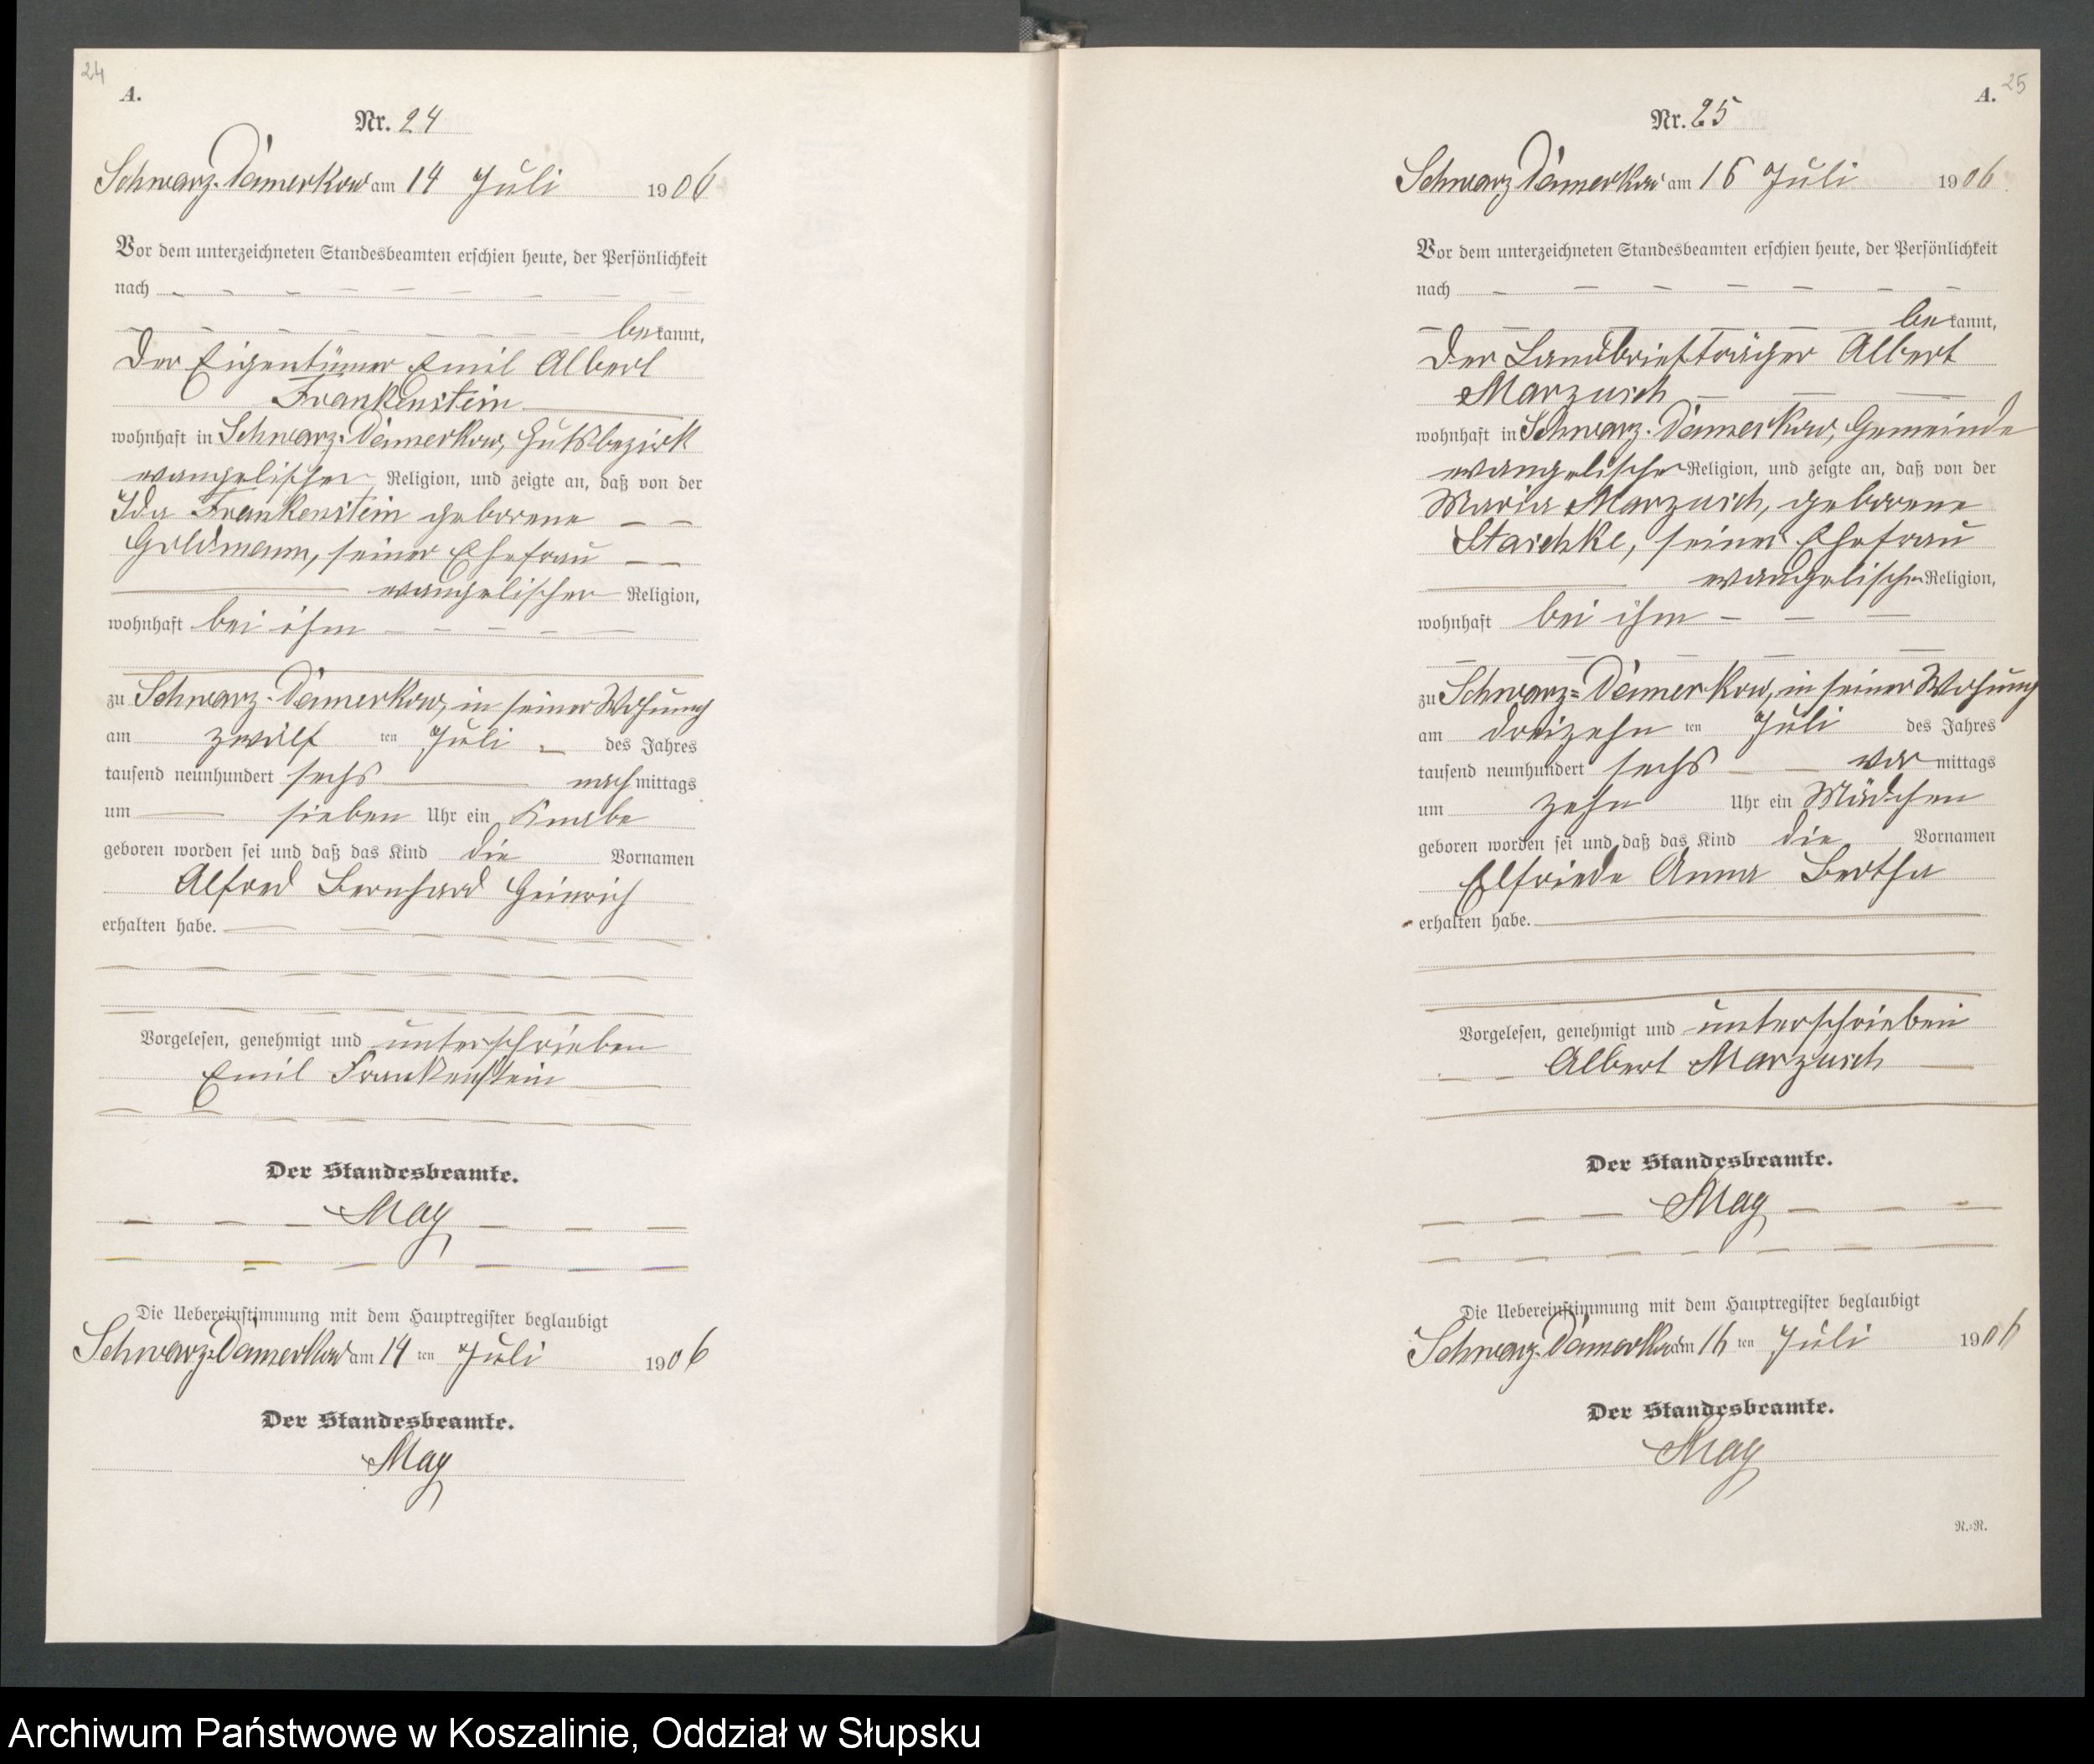 24
A.
Nr. 24
Schwarz-Damerkow am 14 Juli 1906
Vor dem unterzeichneten Standesbeamten erschien heute, der Persönlichkeit
nach
bekannt,
der Eigentümer Emil Albert
Frankenstein
wohnhaft in Schwarz-Damerkow, Gutsbezirk
evangelischer Religion, und zeigte an, daß von der
Ida Frankenstein geborene
Goldmann, seiner Ehefrau
evangelischer Religion,
wohnhaft bei ihm
zu Schwarz-Damerkow, in seiner Wohnung
am zwölf ten Juli des Jahres
tausend neunhundert sechs nachmittags
um sieben Uhr ein Knabe
geboren worden sei und daß das Kind die Vornamen
Alfred Bernhard Heinrich
erhalten habe.
Vorgelesen, genehmigt und unterschrieben
Emil Frankenstein
Der Standesbeamte.
May
Die Uebereinstimmung mit dem Hauptregister beglaubigt
Schwarz-Damerkow am 14 ten Juli 1906
Der Standesbeamte.
May
25
A.
Nr. 25
Schwarz-Damerkow am 16 Juli 1906
Vor dem unterzeichneten Standesbeamten erschien heute, der Persönlichkeit
nach
bekannt,
der Landbriefträger Albert
Marzusch
wohnhaft in Schwarz-Damerkow, Gemeinde
evangelischer Religion, und zeigte an, daß von der
Maria Marzusch, geborene
Staschke, seiner Ehefrau
evangelischer Religion,
wohnhaft bei ihm
zu Schwarz-Damerkow, in seiner Wohnung
am dreizehn ten Juli des Jahres
tausend neunhundert sechs vormittags
um zehn Uhr ein Mädchen
geboren worden sei und daß das Kind die Vornamen
Elfriede Anna Bertha
erhalten habe.
Vorgelesen, genehmigt und unterschrieben
Albert Marzusch
Der Standesbeamte.
May
Die Uebereinstimmung mit dem Hauptregister beglaubigt
Schwarz-Damerkow am 16 ten Juli 1906
Der Standesbeamte.
May
R.-R.
Archiwum Państwowe w Koszalinie, Oddział w Słupsku